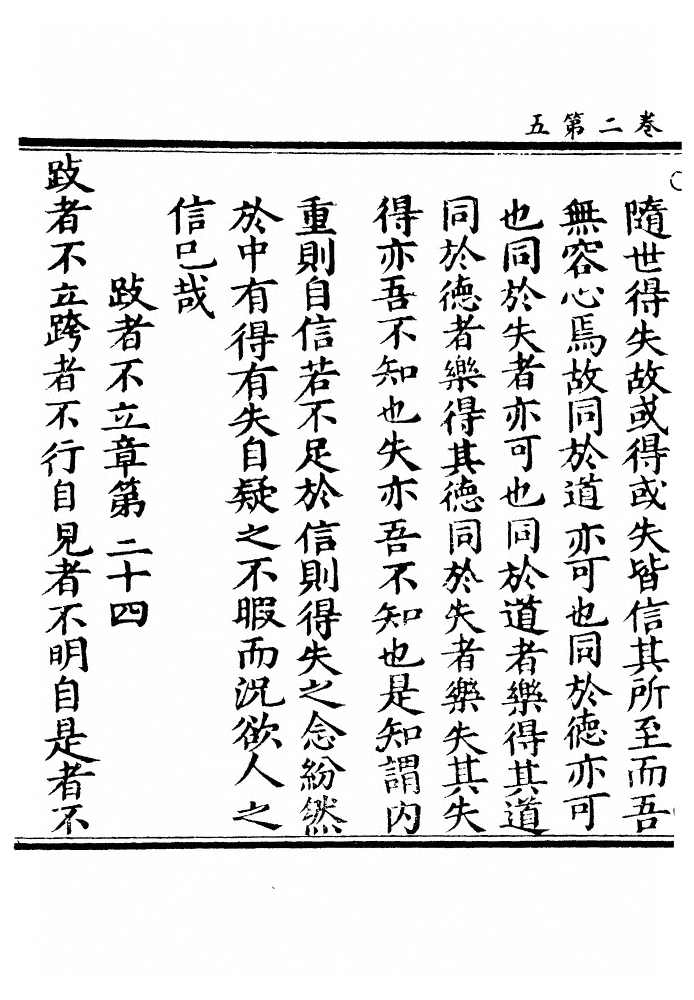 卷二第五
隨世得失故或得或失皆信其所至而吾
無容心焉故同於道亦可也同於德亦可
也同於失者亦可也同於道者樂得其道
同於德者樂得其德同於失者樂失其失
得亦吾不知也失亦吾不知也是知謂內
重則自信若不足於信則得失之念紛然
於中有得有失自疑之不暇而況欲人之
信已哉
跂者不立章第二十四
跂者不立跨者不行自見者不明自是者不